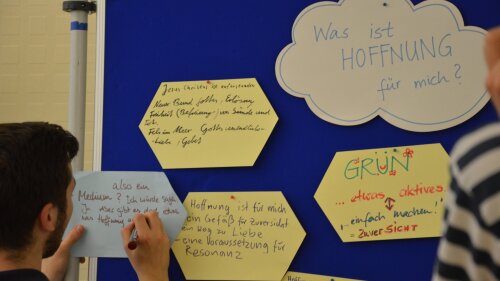 Was ist
HOFFNUNG
für mich?
Jesus Christus ist auferstanden
Neuer Bund Gottes, Erlösung
Freiheit (Befreiung) von Sünde und
Tod.
Fels im Meer Gottes
Liebe, Gebet
GRÜN
... etwas aktives.
einfach machen!
= ZuverSICHT
also ein
Medium? Ich würde sagen
Ja aber gibt es doch etwas
was Hoffnung
Hoffnung ist für mich
ein Gefäß für Zuversicht
ein Weg zu Liebe
eine Voraussetzung für
Resonanz
Hoff